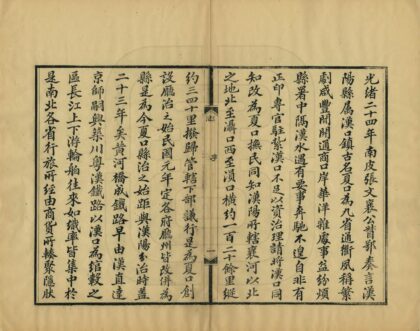 光緒二十四年南皮張文襄公督鄂奏言漢
陽縣屬漢口鎮古名夏口為九省通衢夙稱繁
劇咸豐間開通商口岸華洋雜處事益紛煩
縣署中隔漢水遇有要事奔馳不遑自非有
正印專官駐紮漢口不足以資治理請將漢口同
知改為夏口撫民同知漢陽府轄襄河以北
之地北至灄口西至溳口橫約一百二十餘里縱
序
一
約三四十里撥歸管轄下部議行是為夏口創
設廳治之始民國元年定各府廳州皆改併為
縣是為今夏口縣治之始距與漢陽分治時蓋
二十三年矣黃河橋成鐵路早由漢直達
京師嗣興築川粵漢鐵路以漢口為綰轂之
區長江上下游輪舶往來如織率皆集中於
是南北各省行旅所經由商賈所輳聚隱肰